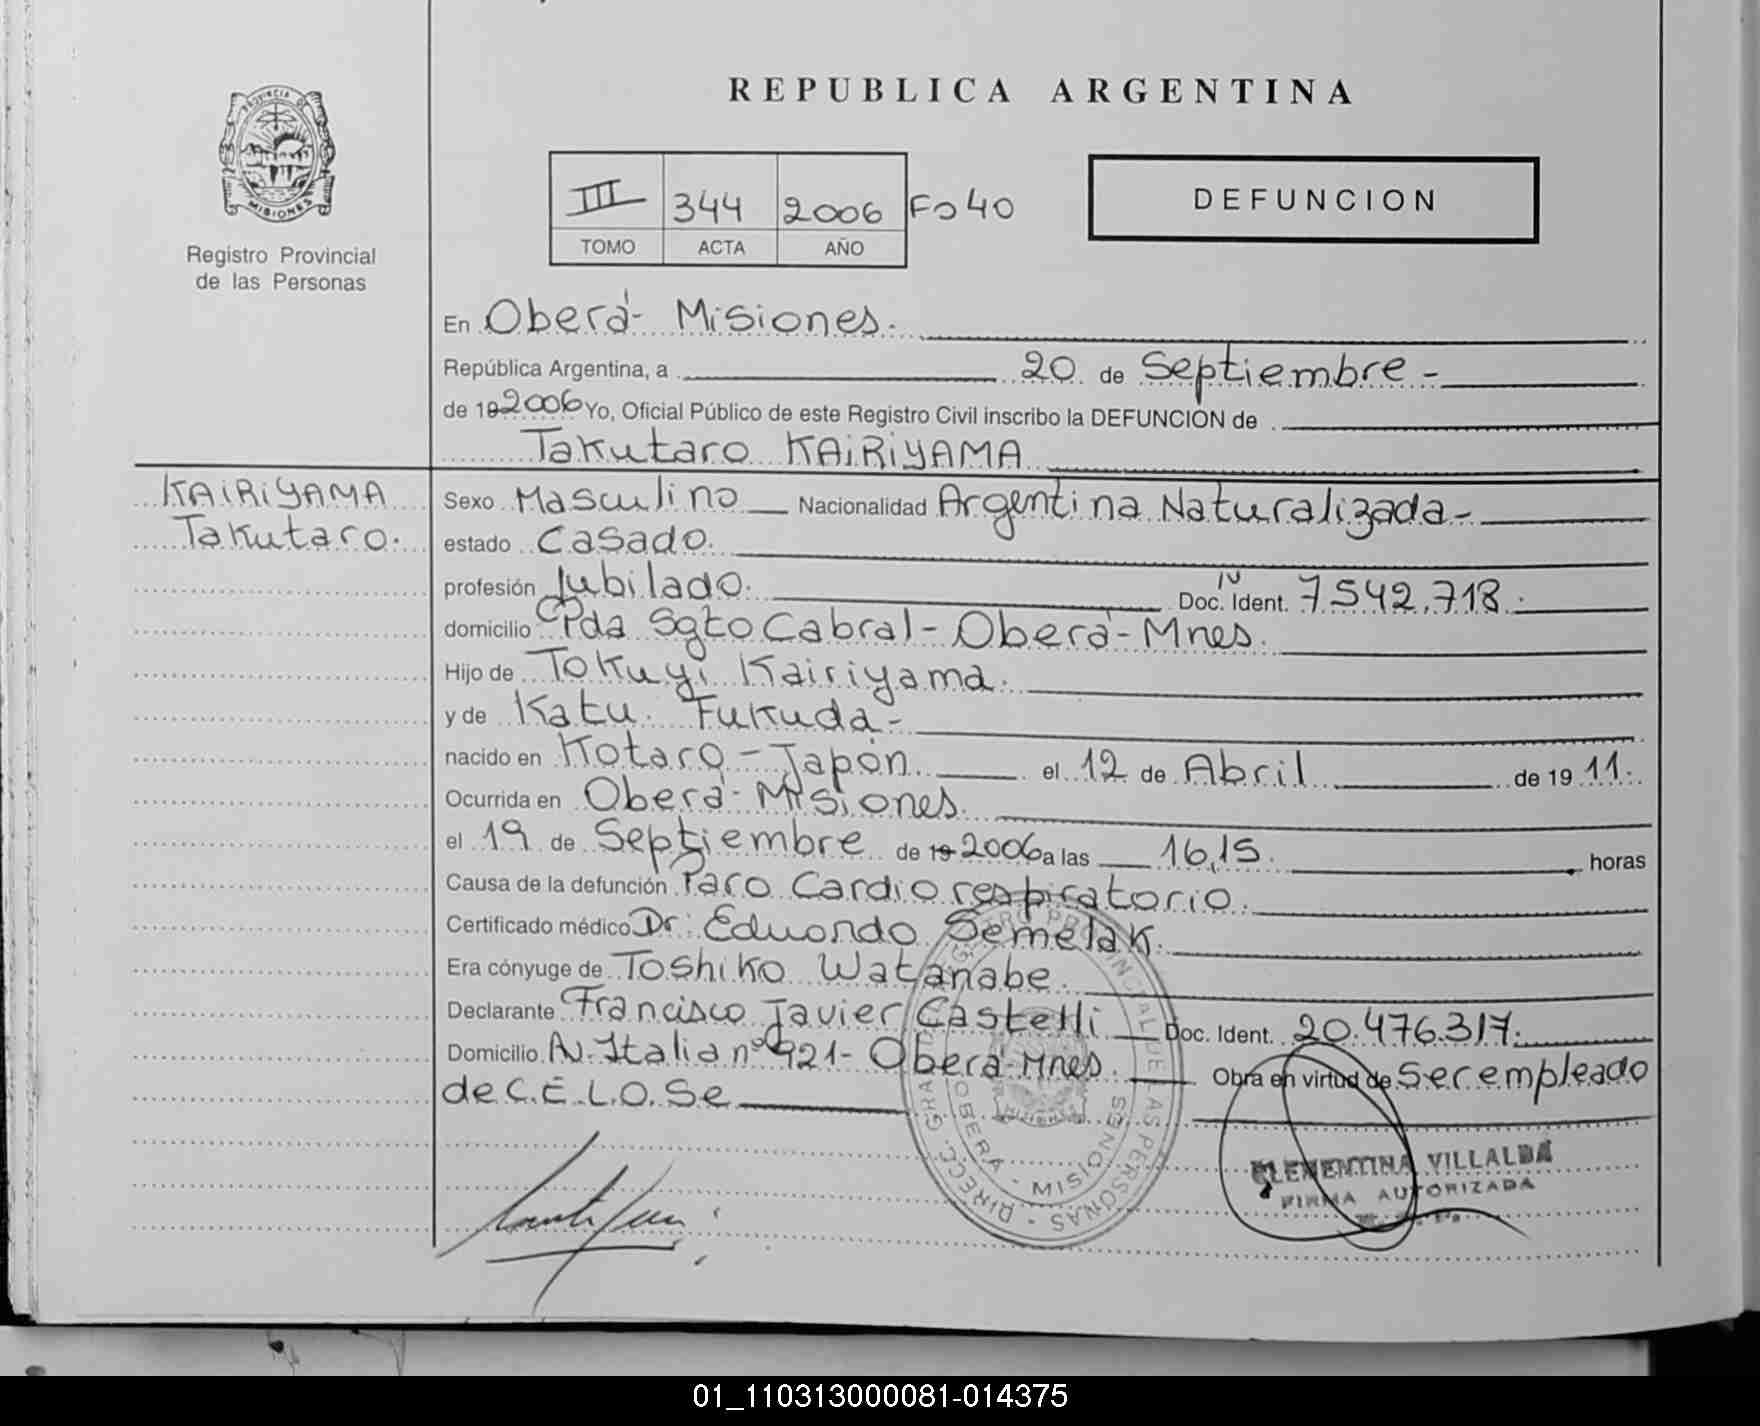 REPUBLICA ARGENTINA
PROVINCIA DE
MISIONES
Registro Provincial
de las Personas
III 344 2006 Fo 40
TOMO ACTA AÑO
DEFUNCION
En Oberá - Misiones.
República Argentina, a 20 de Septiembre -
de 19 2006 Yo, Oficial Público de este Registro Civil inscribo la DEFUNCIÓN de
Takutaro KAiRiYAMA
KAiRiYAMA
Takutaro.
Sexo Masculino Nacionalidad Argentina Naturalizada -
estado Casado.
profesión Jubilado. Doc. Ident. 7.542.718.
domicilio Pda Sgto Cabral - Oberá - Mnes.
Hijo de Tokuyi Kairiyama.
y de Katu Fukuda -
nacido en Kotaro - Japón el 12 de Abril de 19 11.
Ocurrida en Oberá - Misiones.
el 19 de Septiembre de 19 2006 a las 16,15. horas
Causa de la defunción Paro Cardiorespiratorio.
Certificado médico Dr: Eduardo Semelak.
Era cónyuge de Toshiko Watanabe.
Declarante Francisco Javier Castelli Doc. Ident. 20.476.317.
Domicilio Av. Italia nº 921 - Oberá - Mnes. Obra en virtud de Ser empleado
de C.E.L.O. Se
DIRECC. GRAL. DE REGISTRO PROVINCIAL DE LAS PERSONAS
OBERA - MISIONES
CLEMENTINA VILLALBA
FIRMA AUTORIZADA
01_110313000081-014375